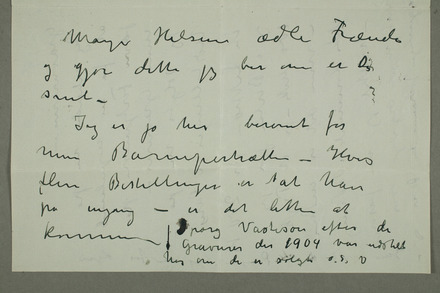 Mange Hilsener ædle Frænde
og gjør dette jeg ber om er De
snil –
Jeg er jo her berømt for
mine Barneportrætter – Hvis
flere Bestillinger er tat kan
på engang – er det lettere at
komme – Spørg efter de
Graveurer der 1904 var udstilt
her om de er solgte o.s.v